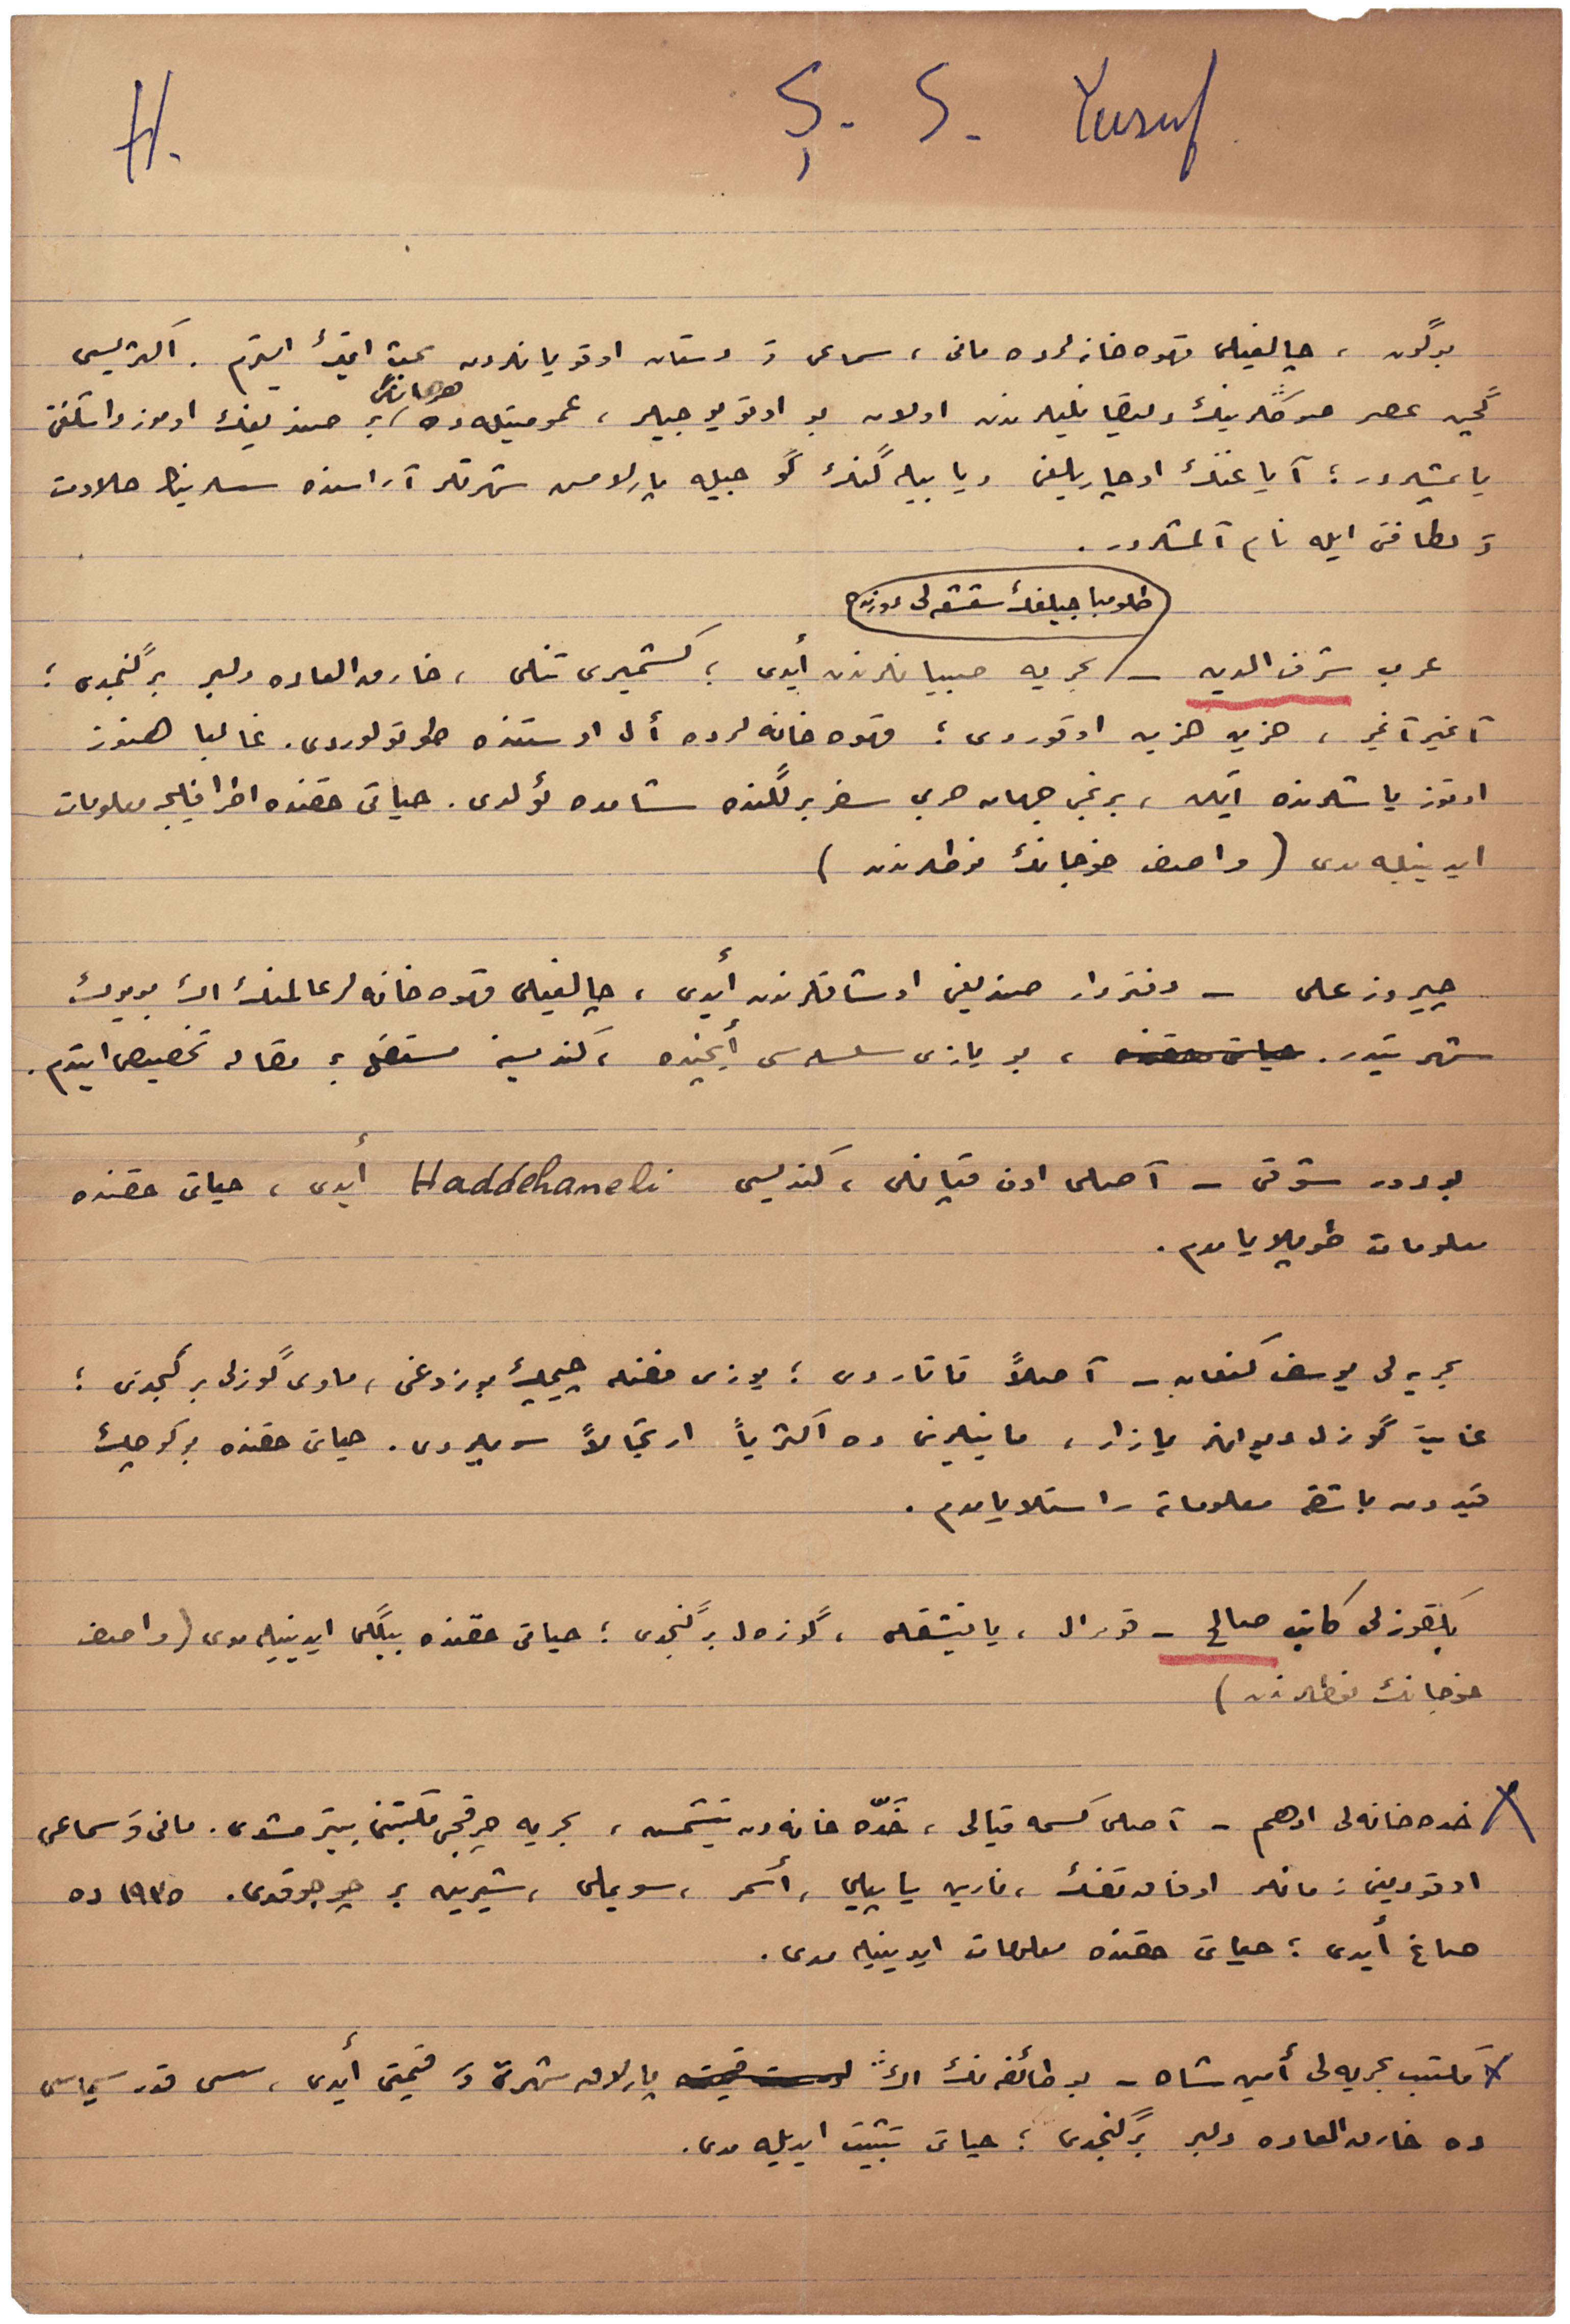 H. Ş. S. Yusuf
بوگون ، چالغیلی قهوه خانه لرده مانی ، سماعی و دستان اوقویانلردن بحث ایتمك ایسترم . اکثریسی
گچن عصر صوڭلرینك دلیقانلیلرندن اولان بو اوقویوجیلر ، عمومیتله ده هرهانكی بر صندیغك اوموزداشلغنی
یاپمشلردر ؛ آیاغنك اوچاریلغی ویا بیله گنك گوجیله پارلامس شهرتلر آراسنده سسلرینك حلاوت
و لطافتی ایله نام آلمشلردر .
طلومباجیلغك شعشعه لی دورنده
عرب شرف الدین – بحریه صیبیانلرندن أیدی ؛ کشمیری تنلی ، خارق العاده دلبر بر گنجدی ؛
آغیر آغیر ، حزین حزین اوقوردی ؛ قهوه خانه لرده أل اوستنده طوتولوردی . غالبا هنوز
اوتوز یاشلرنده ایكن ، برنجی جهان حربی سفربرلگنده شامده ئولدی . حیاتی حقنده اطرافلیجه معلومات
ایدینیله مدی ( واصف خوجانك نوطلرندن )
چیروز علی – دفتردار صندیغی اوشاقلرندن أیدی ، چالغیلی قهوه خانه لر عالمنك اڭ بویوك
شهرتیدر . حیاتی حقنده ، بو یازی سلسله سی أیچنده ، كندیسنه مستقل بر مقاله تخصیص ایتدم .
بودور شوقی – آصلی اون قپانلی ، كندیسی Haddehaneli أیدی ، حیاتی حقنده
معلومات طوپلایامدم .
بحریه لی یوسف كنعان – آصلاً تاتاردی ؛ یوزی فضله چیچك بوزوغی ، ماوی گوزلی بر گنجدی ؛
غایت گوزل دیوانلر یازار ، مانیلرینی ده اكثریاً ارتجالاً سویلردی . حیاتی حقنده بو كوچك
قیددن باشقه معلوماته راستلایامدم .
یالقوزلی كاتب صالح – قورال ، یاقیشقلی ، گوزه ل بر گنجدی ؛ حیاتی حقنده بیلگی ایدینیله مدی ( واصف
خوجانك نوطلرندن )
خده خانه لی ادهم – آصلی كسمه قیالی ، خدّه خانه دن یتیشمش ، بحریه چرقجی مكتبنی بیترمشدی . مانی و سماعی
اوقودیغی زمانلر اوفاق تفك ، نارین یاپیلی ، أسمر ، سویملی ، شیرین بر چوجوقدی . ١٩٣٥ ده
صاغ أیدی ؛ حیاتی حقنده معلومات ایدینیله مدی .
مكتب بحریه لی أمین شاه – بو طائفه نك اڭ پارلاق شهرت و قیمتی أیدی ، سسی قدر سیماسی
ده خارق العاده دلبر بر گنجدی ؛ حیاتی تثبیت ایدیله مدی .